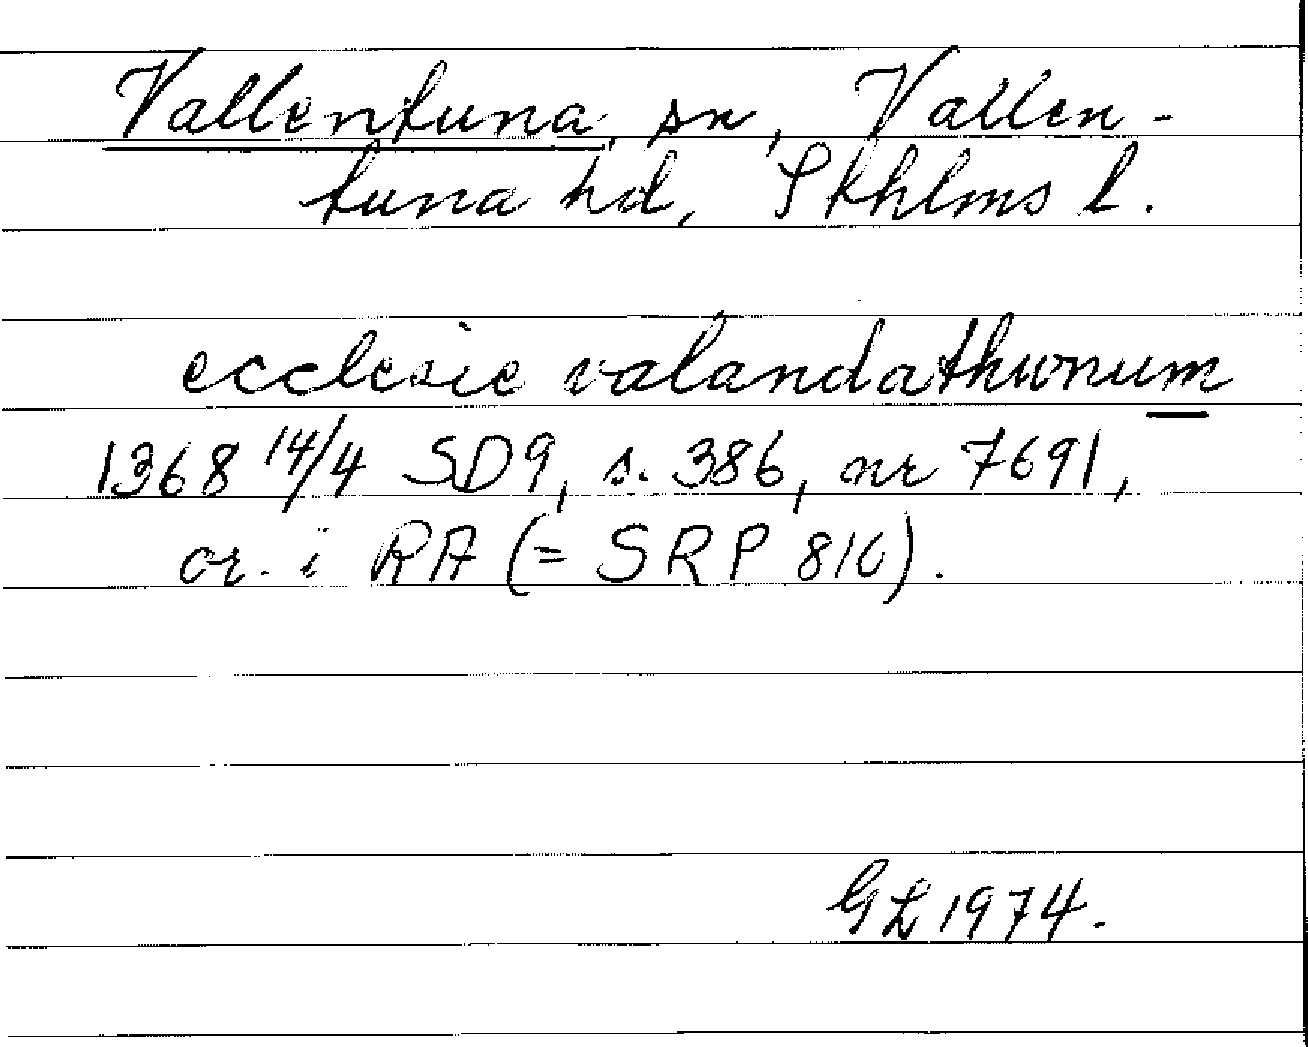 Vallentuna, sn, Vallen-
tuna hd, Sthlms l.
ecclesie valandathwnum
1368 14/4 SD9, s. 386, nr 7691,
or. i RA (= SRP 810).
GL 1974.